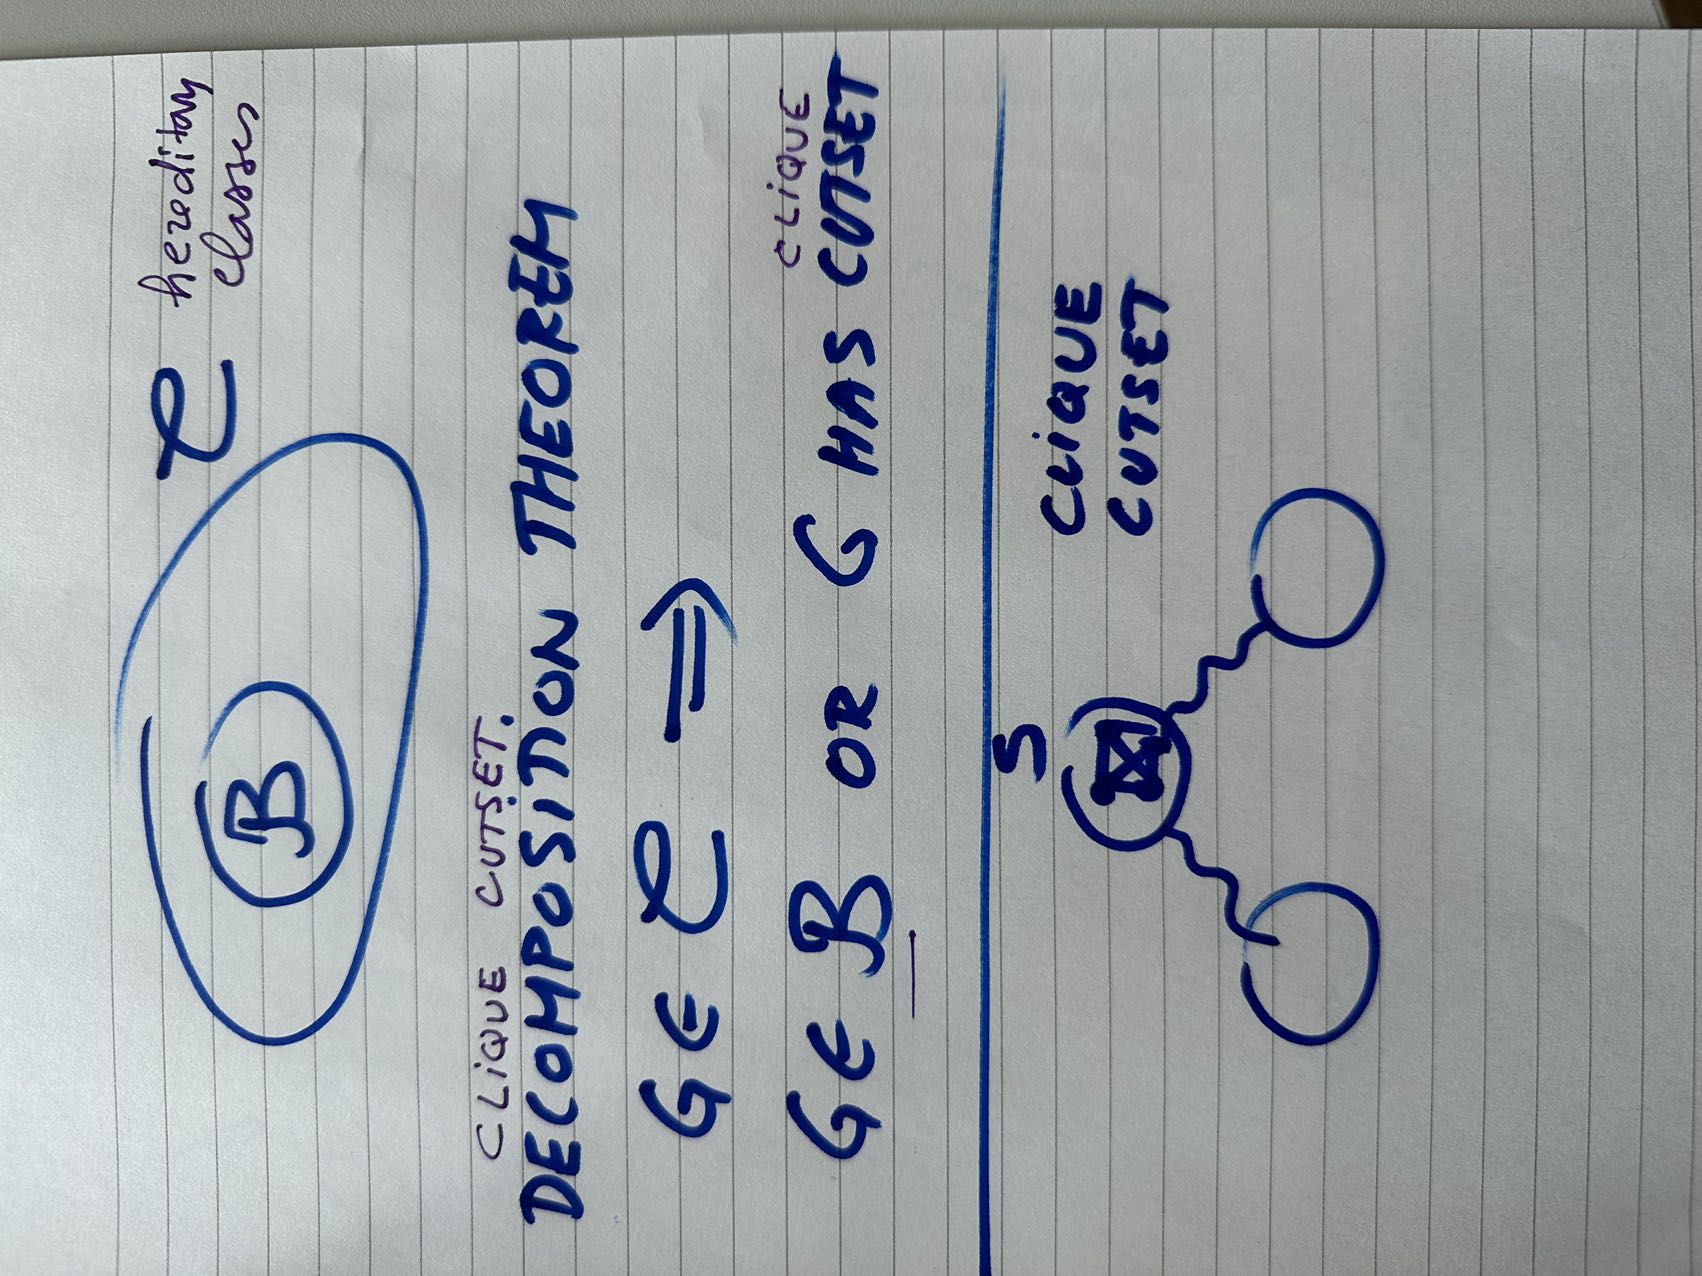 C hereditary
classes
B
CLIQUE CUTSET.
DECOMPOSITION THEOREM
G ∈ C ⇒
CLIQUE
G ∈ B OR G HAS CUTSET
S
CLIQUE
CUTSET